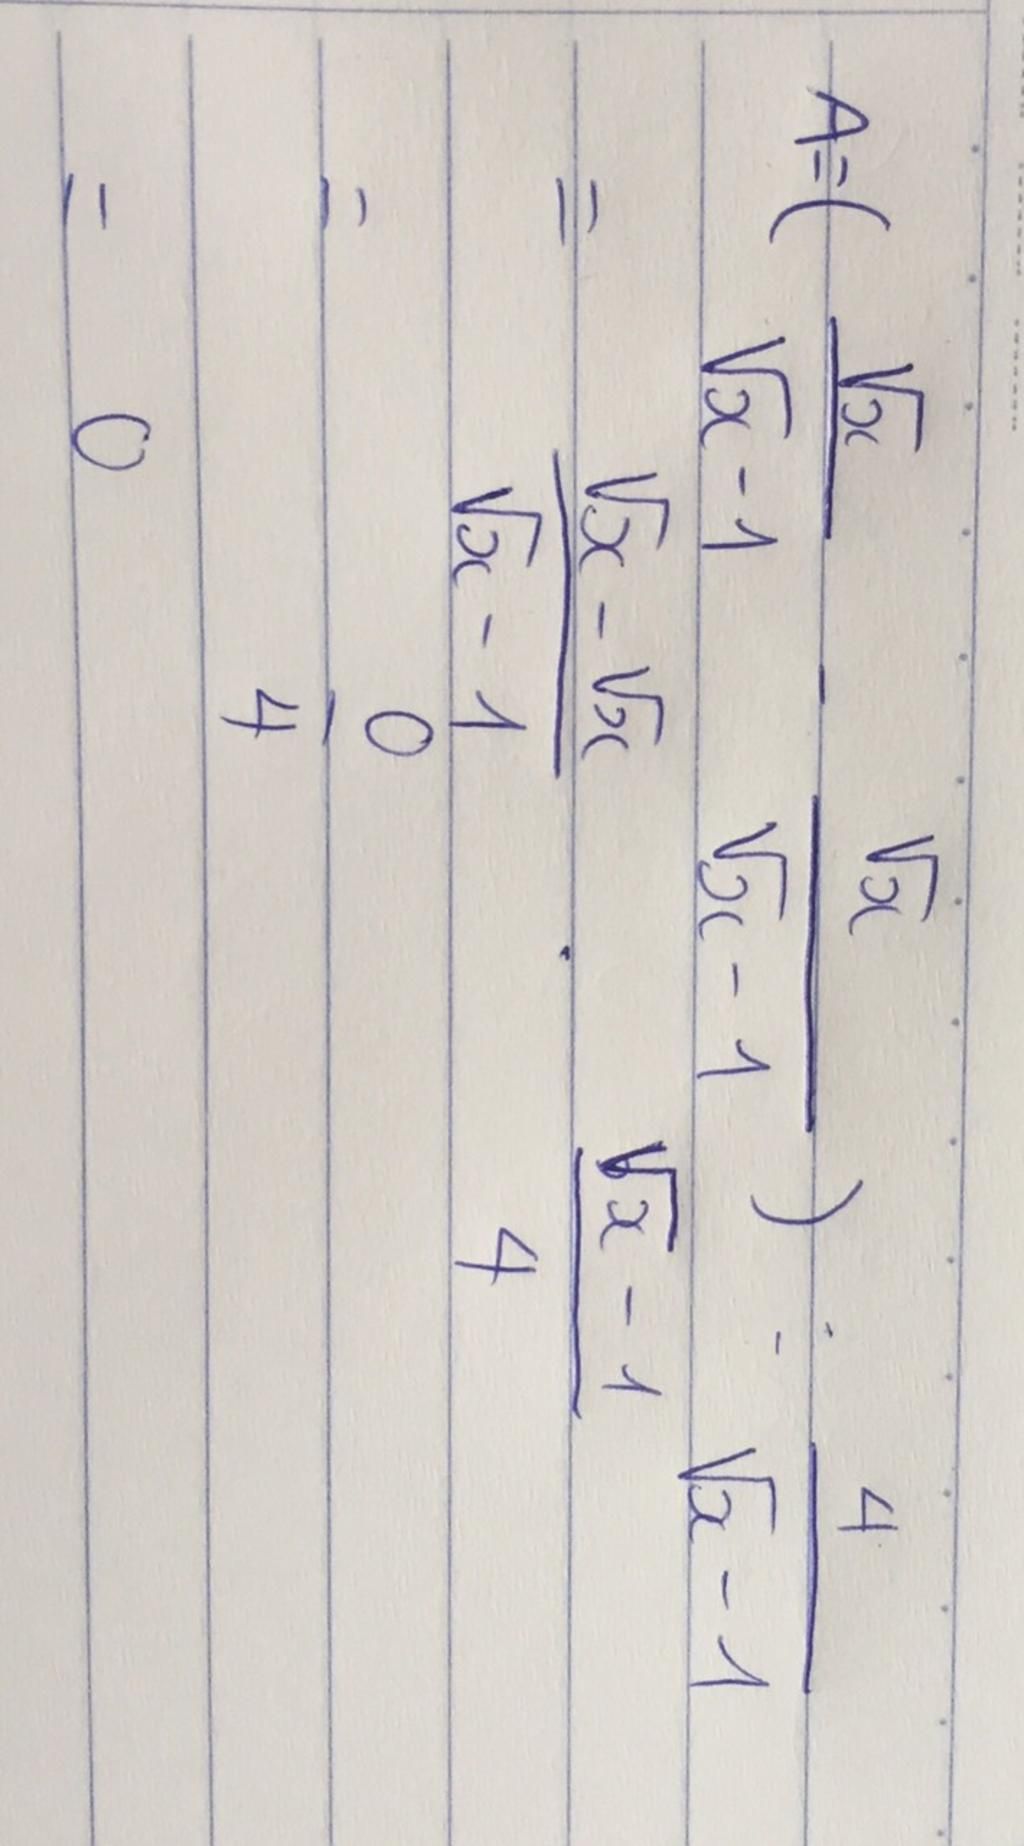 A = ( √x / (√x - 1) - √x / (√x - 1) ) : 4 / (√x - 1)
= (√x - √x) / (√x - 1) . (√x - 1) / 4
= 0 / 4
= 0